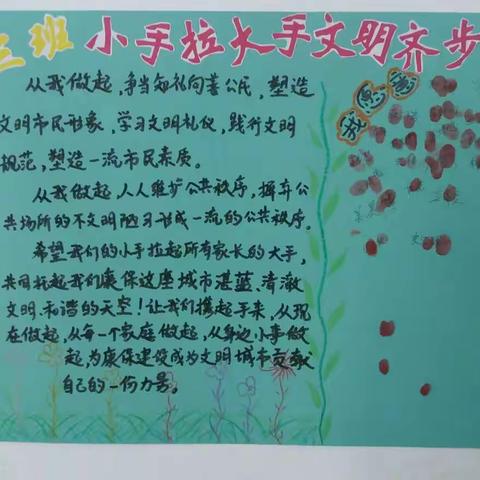 三班 小手拉大手文明齐步
从我做起，争当知礼向善公民，塑造
文明市民形象，学习文明礼仪，践行文明
规范，塑造一流市民素质。
从我做起，人人维护公共秩序，摒弃公
共场所的不文明陋习形成一流的公共秩序。
希望我们的小手拉起所有家长的大手，
共同托起我们康保这座城市湛蓝、清澈
文明、和谐的天空！让我们携起手来，从现
在做起，从每一个家庭做起，从身边小事做
起，为康保建设成为文明城市贡献
自己的一份力量。
我愿意